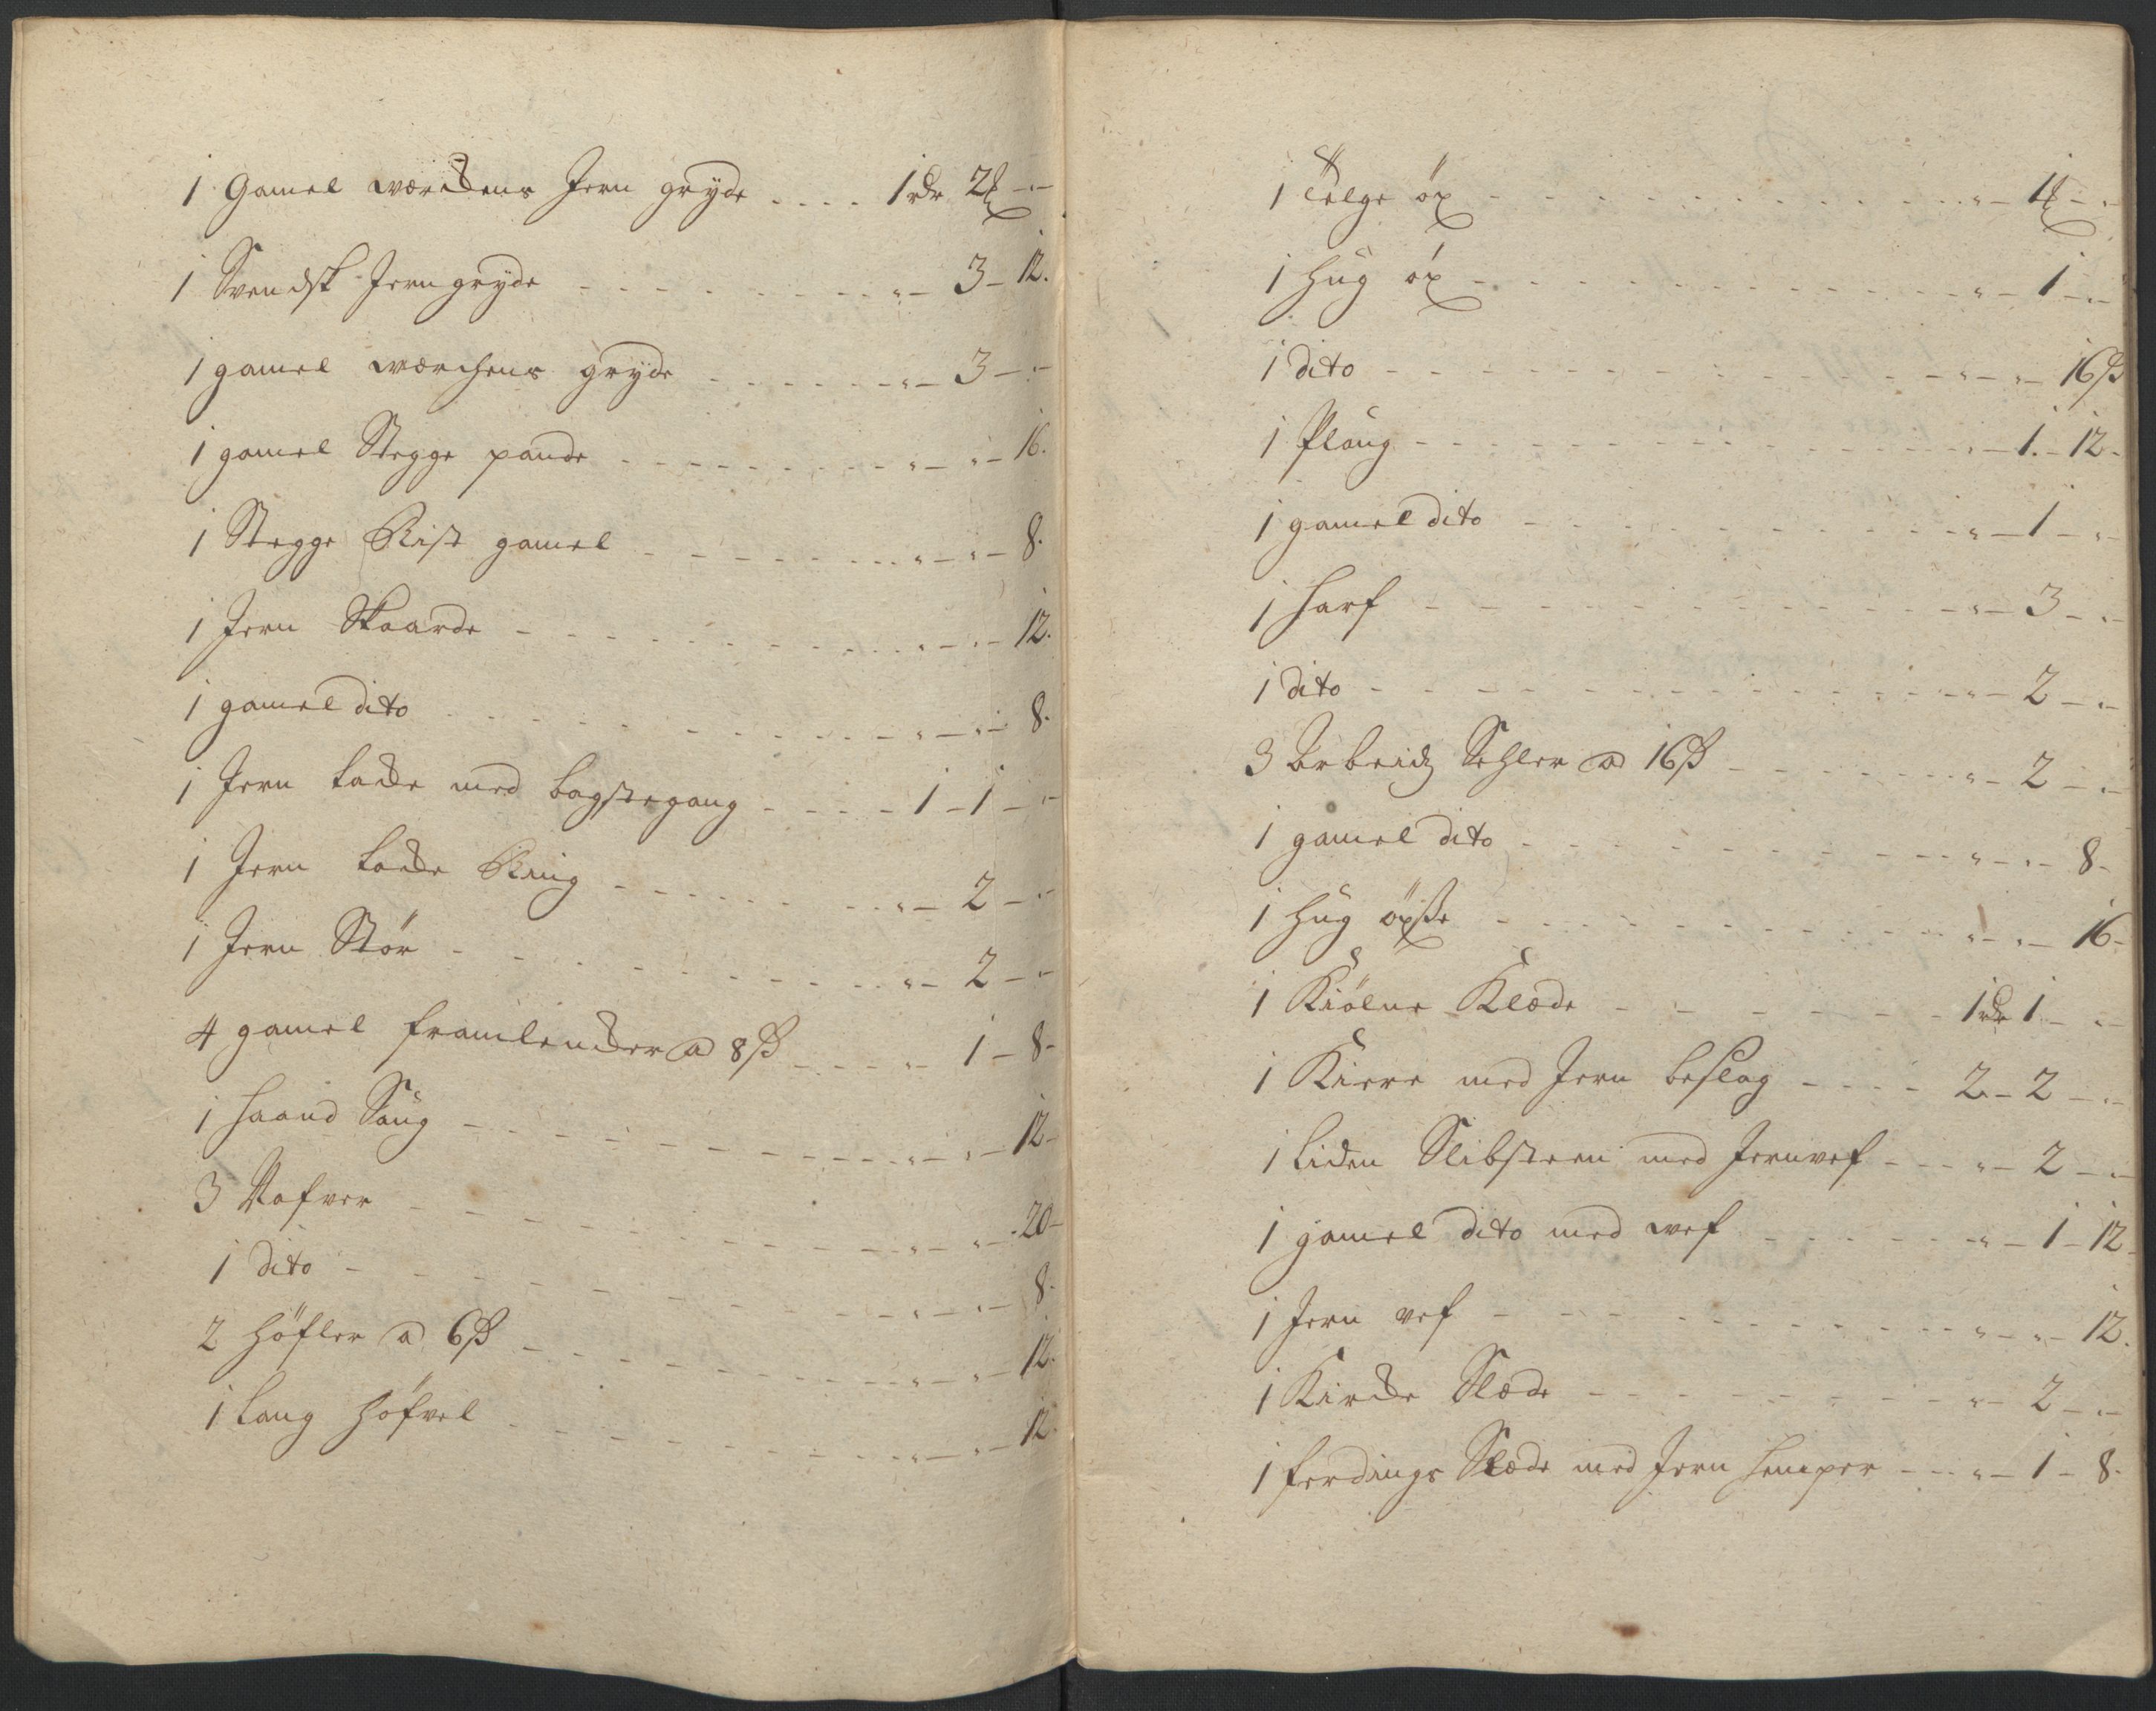 1 Gamel værckens Jern gryde .... 1 rdr 2 ₰ - "-
1 Svendsk Jerngryde - - - - - - - - - "- 3 - 12.
1 gamel værchens gryde - - - - - - "- 3 - "-
1 gamel Stegge pande - - - - - - - - - "- "- 16.
1 Stegge Rist gamel - - - - - - - - "- "- 8.
1 Jern Skaarde - - - - - - - - - - - "- "- 12.
1 gamel dito - - - - - - - - - - - - "- "- 8.
1 Jern kacke med bagstegang - - - - 1 - 1 - "-
1 Jern kacke Ring - - - - - - - "- 2 - "-
1 Jern Stør - - - - - - - - - - - "- 2 - "-
4 gamel framlencker a 8 ß - - - - "- 1 - 8 -
1 haand Saug - - - - - - - - - - - "- "- 12 -
3 Nafver - - - - - - - - - - - - "- "- 20 -
1 dito - - - - - - - - - - - - "- "- 8 -
2 høfler a 6 ß - - - - - - - - - "- "- 12.
1 Lang høfvel - - - - - - - - - "- "- 12.
1 Tølge øx - - - - - - - - - - - - "- 1 ₰ - "-
1 hug øx - - - - - - - - - - - - "- 1 - "-
1 dito - - - - - - - - - - - - "- "- 16 ß
1 Ploug - - - - - - - - - - - - "- 1. - 12 -
1 gamel dito - - - - - - - - - - "- 1 - "-
1 harf - - - - - - - - - - - - "- 3 - "-
1 dito - - - - - - - - - - - - "- 2 - "-
3 Arbeidz Sehler a 16 ß - - - - - - - "- 2 - "-
1 gamel dito - - - - - - - - - - "- "- 8 -
1 hug øxße - - - - - - - - - - - "- "- 16 -
1 Kiølne Klæde - - - - - - - 1 rdr 1 - "-
1 Kiere med Jern beslag - - - - 2 - 2 - "-
1 liden Slibsteen med Jernvef - - - "- 2 - "-
1 gamel dito med vef - - - - - - "- 1 - 12 -
1 Jern vef - - - - - - - - - - - "- "- 12.
1 Kircke Slæde - - - - - - - - "- 2 - "-
1 ferdings Slæde med Jern hemper - - - "- 1 - 8 -